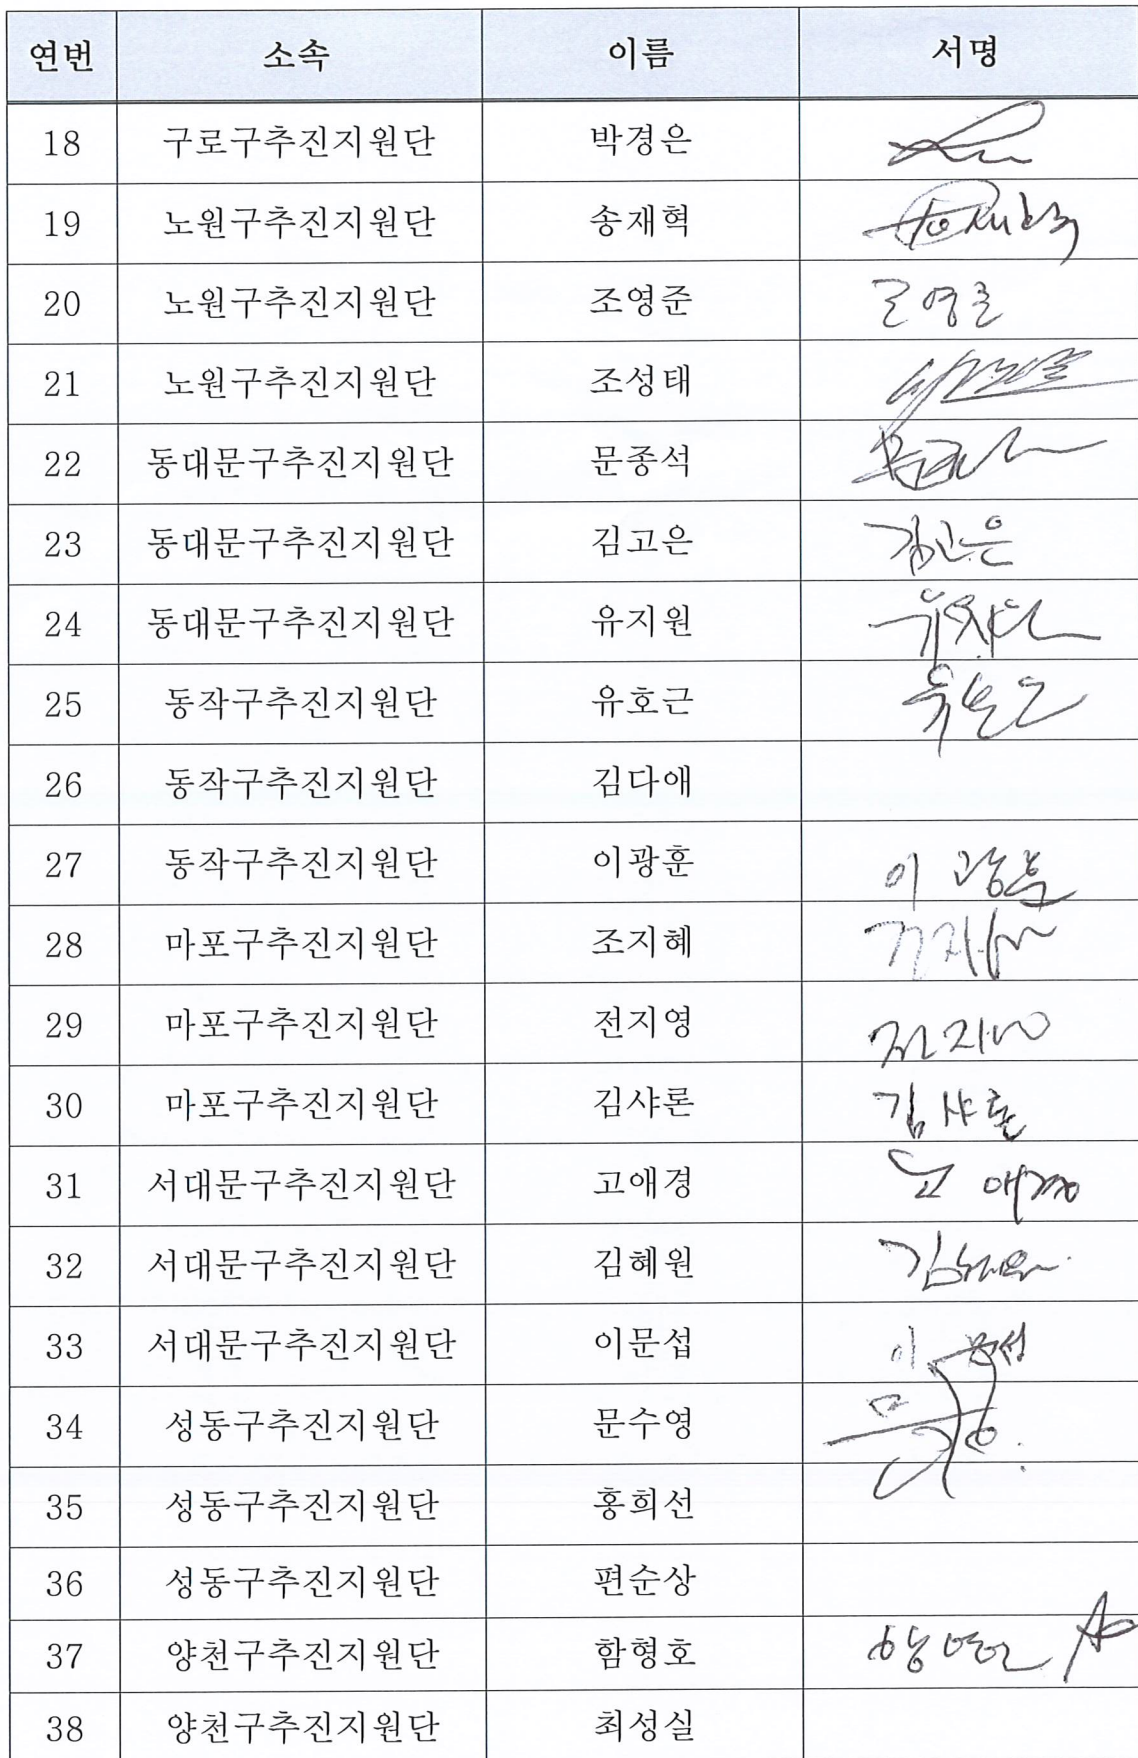 연번 소속 이름 서명
18 구로구추진지원단 박경은
19 노원구추진지원단 송재혁
20 노원구추진지원단 조영준 조영준
21 노원구추진지원단 조성태
22 동대문구추진지원단 문종석
23 동대문구추진지원단 김고은 김고은
24 동대문구추진지원단 유지원 유지원
25 동작구추진지원단 유호근 유호근
26 동작구추진지원단 김다애
27 동작구추진지원단 이광훈 이광훈
28 마포구추진지원단 조지혜
29 마포구추진지원단 전지영 전지영
30 마포구추진지원단 김샤론 김샤론
31 서대문구추진지원단 고애경 고애경
32 서대문구추진지원단 김혜원 김혜원
33 서대문구추진지원단 이문섭 이문섭
34 성동구추진지원단 문수영
35 성동구추진지원단 홍희선
36 성동구추진지원단 편순상
37 양천구추진지원단 함형호
38 양천구추진지원단 최성실